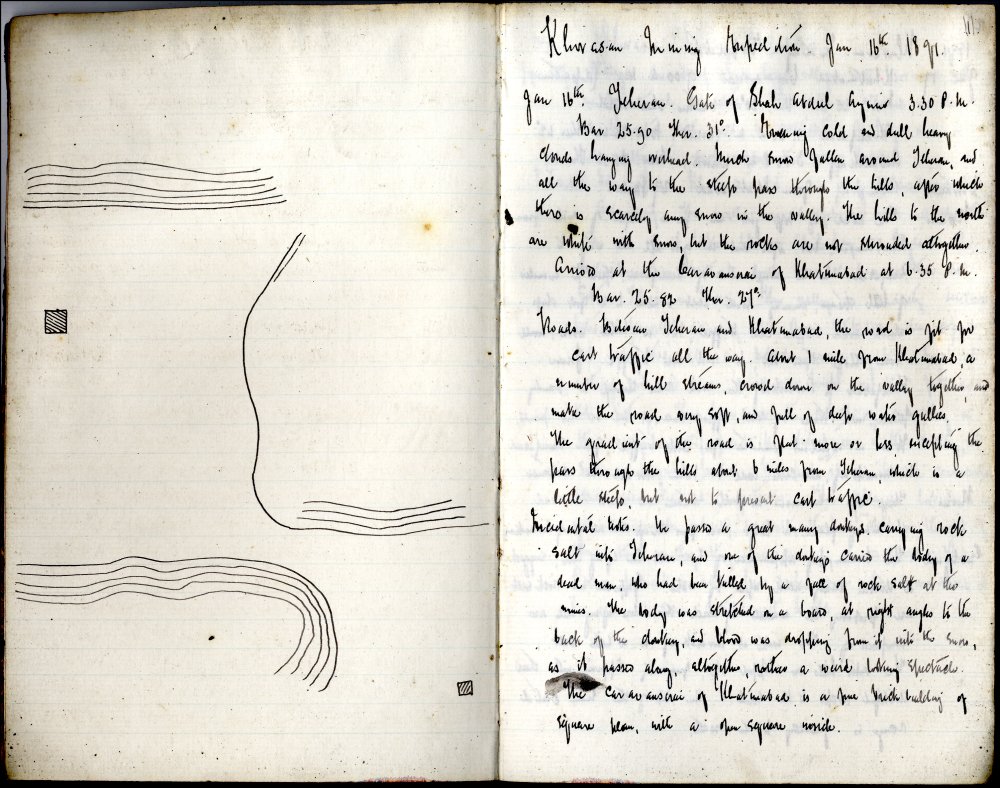 Khorasan Mining Expedition Jan 16th 1891.
Jan 16th. Teheran. Gate of Shah Abdul Azim 3.30 P.M.
Bar 25.90 Ther. 31°. Evening cold and dull heavy
clouds hanging overhead. Much snow fallen around Teheran, and
all the way to the steep pass through the hills, after which
there is scarcely any snow in the valley. The hills to the north
are white with snow, but the rocks are not shrouded altogether.
Arrived at the Caravanserai of Khatunabad at 6.35 P.M.
Bar. 25.82 Ther. 27°
Roads. Between Teheran and Khatunabad, the road is fit for
cart traffic all the way. About 1 mile from Khatunabad, a
number of hill streams, crowd down on the valley together, and
make the road very soft, and full of deep water gullies.
The gradient of the road is flat more or less excepting the
pass through the hills about 6 miles from Teheran, which is a
little steep, but not to prevent cart traffic.
Incidental Notes. We passed a great many donkeys carrying rock
salt into Teheran, and one of the donkeys carried the body of a
dead man, who had been killed by a fall of rock salt at the
mines. The body was stretched on a board, at right angles to the
back of the donkey, and blood was dropping from it into the snow,
as it passed along, altogether, rather a weird looking spectacle.
The Caravanserai of Khatunabad is a fine brick building of
square plan, with a open square inside.